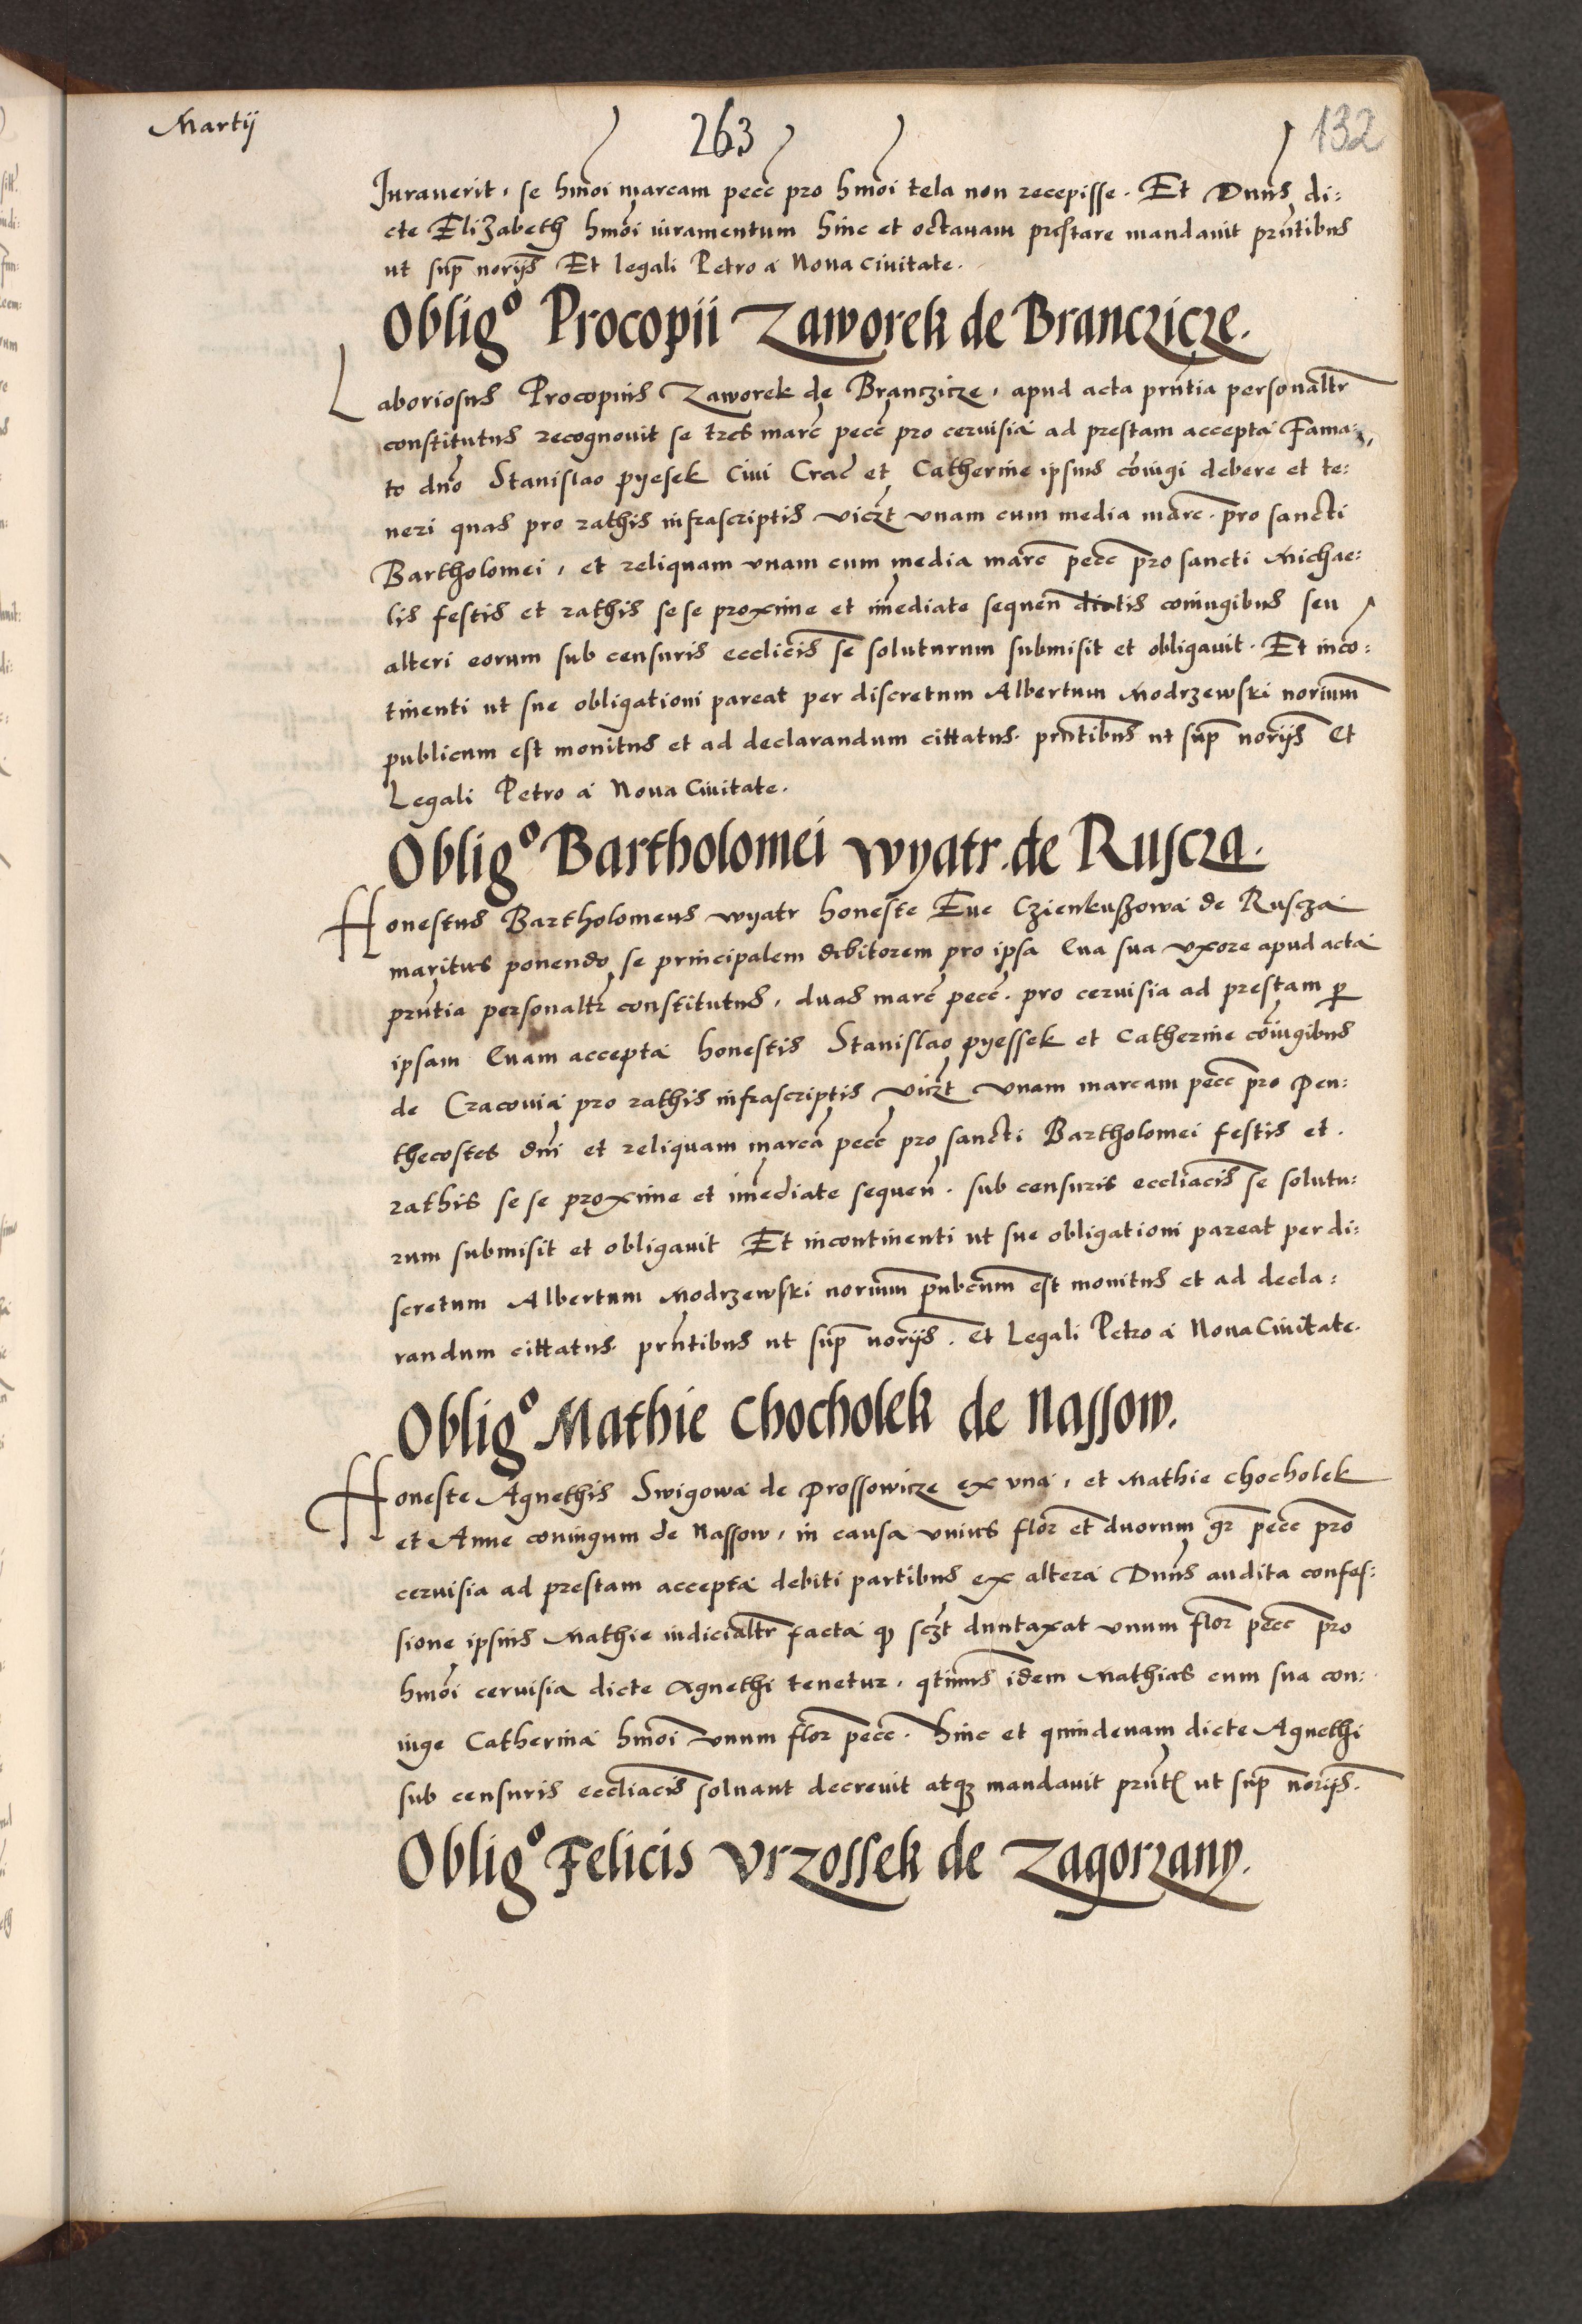 Martij
263
132
Juraverit, se hmoi marcam pecc pro hmoi tela non recepisse. Et Dnus di:
cte Elizabeth hmoi iuramentum hinc et octavam prestare mandavit prntibus
ut sup norijs Et legali Petro á Nova civitate.
Obligo Procopii Zaworek de Branczicze.
Laboriosus Procopius Zaworek de Branczicze, apud acta prntia personaltr
constitutus recognovit se tres marc pecc pro cervisia ad prestam accepta Fama:
to dno Stanislao pyesek Civi Crac et Catherine ipsius coniugi debere et te:
neri quas pro rathis infrascriptis viczt unam cum media marc. pro sancti
Bartholomei, et reliquam vnam cum media marc pecc pro sancti Michae:
lis festis et rathis se se proxime et imediate sequen dictis coniugibus seu
alteri eorum sub censuris ecclicis se soluturum submisit et obligavit. Et inco:
tinenti ut sue obligationi pareat per discretum Albertum Modrzewski norium
publicum est monitus et ad declarandum cittatus. prntibus ut sup norijs Et
Legali Petro á Nova Civitate.
Obligo Bartholomei wyatr. de Ruscza.
Honestus Bartholomeus wyatr honeste Eve Czienkusßowa de Ruscza
maritus ponendo se principalem debitorem pro ipsa Eva sua vxore apud acta
prntia personaltr constitutus, duas marc pecc. pro cervisia ad prestam p
ipsam Evam accepta honestis Stanislao pyessek et Catherine coiugibus
de Cracovia pro rathis infrascriptis viczt vnam marcam pecc pro Pen:
thecostes dni et reliquam marca pecc pro sancti Bartholomei festis et.
rathis se se proxime et imediate sequen. sub censuris eccliacis se solutu:
rum submisit et obligavit Et incontinenti ut sue obligationi pareat per di:
scretum Albertum Modrzewski norium pubcum est monitus et ad decla:
randum cittatus. prntibus ut sup norijs. Et Legali Petro á Nova Civitate.
Obligo Mathie Chocholek de Nassow.
Honeste Agnethis Swigowa de Prossowicze ex vna, et Mathie chocholek
et Anne coniugum de Nassow, in causa vnius flor et duorum gr pecc pro
cervisia ad prestam accepta debiti partibus ex altera Dnus audita confes:
sione ipsius Mathie iudicialtr facta q sczt duntaxat vnum flor pecc pro
hmoi cervisia dicte Agnethi tenetur, qtinus idem Mathias cum sua con:
iuge Catherina hmoi vnum flor pecc. hinc et quindenam dicte Agnethi
sub censuris eccliacis solvant decrevit atq mandavit prnt ut sup norijs.
Obligo Felicis Vrzossek de Zagorzany.